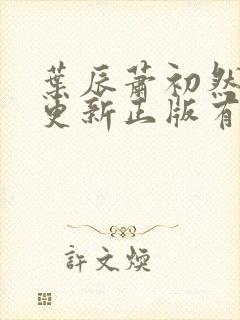 葉辰蕭初然
更新正版有
許文煥